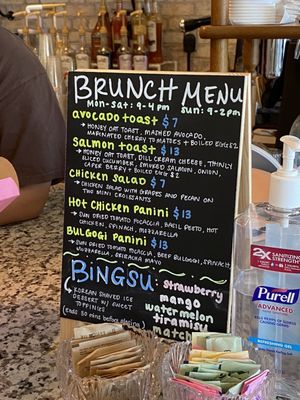 BRUNCH MENU
Mon-Sat: 9-4 PM Sun: 9-2 PM
Avocado toast $7
→ Honey oat toast, mashed avocado,
marinated cherry tomatoes + boiled egg $2
Salmon toast $13
→ Honey oat toast, dill cream cheese, thinly
sliced cucumber, smoked salmon, onion,
caper berry / boiled egg $2
Chicken Salad $7
→ Chicken salad with grapes and pecan on
two mini croissants
Hot Chicken Panini $13
→ Sun dried tomato focaccia, basil pesto, hot
chicken, spinach, mozzarella
Bulgogi Panini $13
→ Sun dried tomato focaccia, beef bulgogi, spinach,
mozzarella, sriracha mayo
BINGSU
Korean shaved ice
dessert w/ sweet
toppings
strawberry
mango
watermelon
tiramisu
matcha
2X
SANITIZING
STRENGTH
PURELL
ADVANCED
REFRESHING GEL